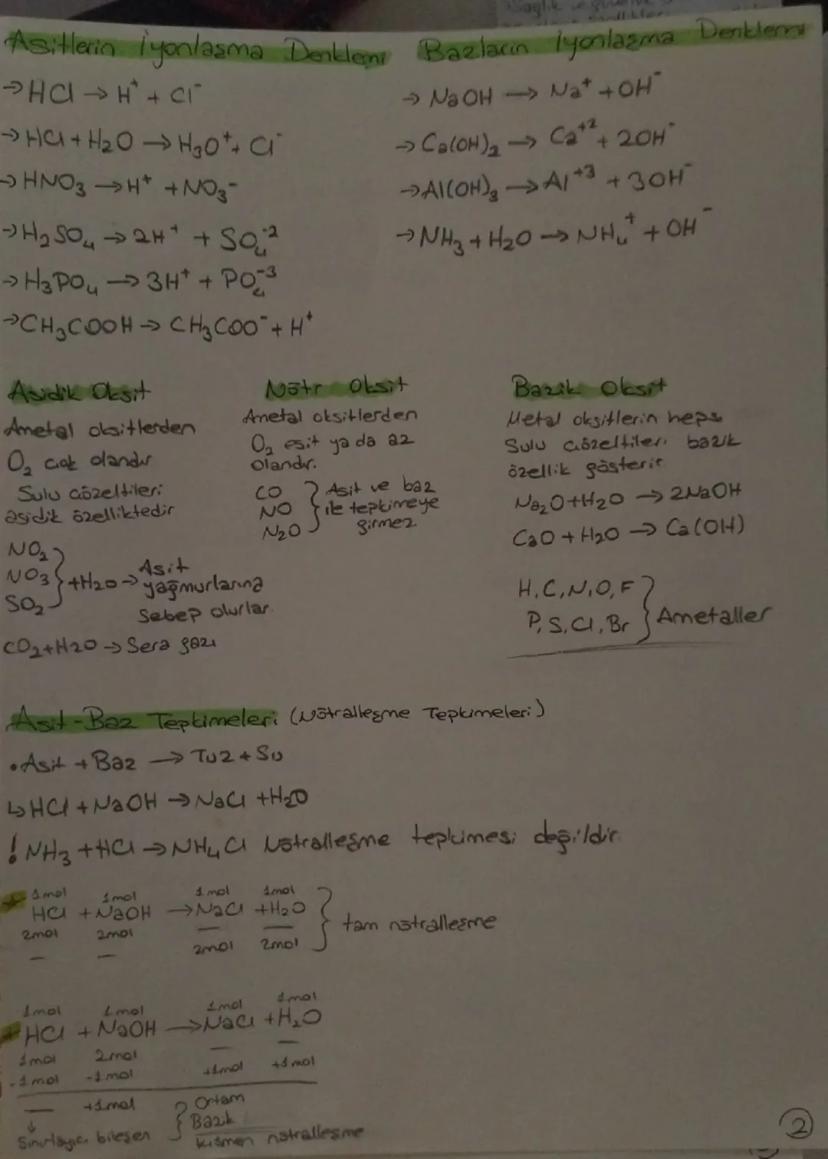 Asitlerin İyonlaşma Denklemi
→HCl → H⁺ + Cl⁻
→HCl + H₂O → H₃O⁺ + Cl⁻
→HNO₃ → H⁺ + NO₃⁻
→H₂SO₄ → 2H⁺ + SO₄⁻²
→H₃PO₄ → 3H⁺ + PO₄⁻³
→CH₃COOH → CH₃COO⁻ + H⁺
Bazların İyonlaşma Denklemi
→ NaOH → Na⁺ + OH⁻
→ Ca(OH)₂ → Ca⁺² + 2OH⁻
→Al(OH)₃ → Al⁺³ + 3OH⁻
→NH₃ + H₂O → NH₄⁺ + OH⁻
Asidik Oksit
Ametal oksitlerden
O₂ çok olandır
Sulu çözeltileri
asidik özelliktedir
NO₂
NO₃
SO₂
} +H₂O → Asit
yağmurlarına
Sebep olurlar.
CO₂ + H₂O → Sera gazı
Nötr Oksit
Ametal oksitlerden
O₂ eşit ya da az
olandır.
CO
NO
N₂O
} Asit ve baz
ile tepkimeye
girmez
Bazik Oksit
Metal oksitlerin hepsi
Sulu çözeltileri bazik
özellik gösterir
Na₂O + H₂O → 2NaOH
CaO + H₂O → Ca(OH)
H, C, N, O, F
P, S, Cl, Br
} Ametaller
Asit-Baz Tepkimeleri (Nötralleşme Tepkimeleri)
• Asit + Baz → Tuz + Su
↳ HCl + NaOH → NaCl + H₂O
! NH₃ + HCl → NH₄Cl Nötralleşme tepkimesi değildir.
1mol 1mol 1mol 1mol
HCl + NaOH → NaCl + H₂O
2mol 2mol — —
— — 2mol 2mol
} tam nötralleşme
1mol 1mol 1mol 1mol
HCl + NaOH → NaCl + H₂O
1mol 2mol — —
-1mol -1mol +1mol +1mol
— +1mol
↓
Sınırlayıcı bileşen
} Ortam
Bazik
kısmen nötralleşme
2